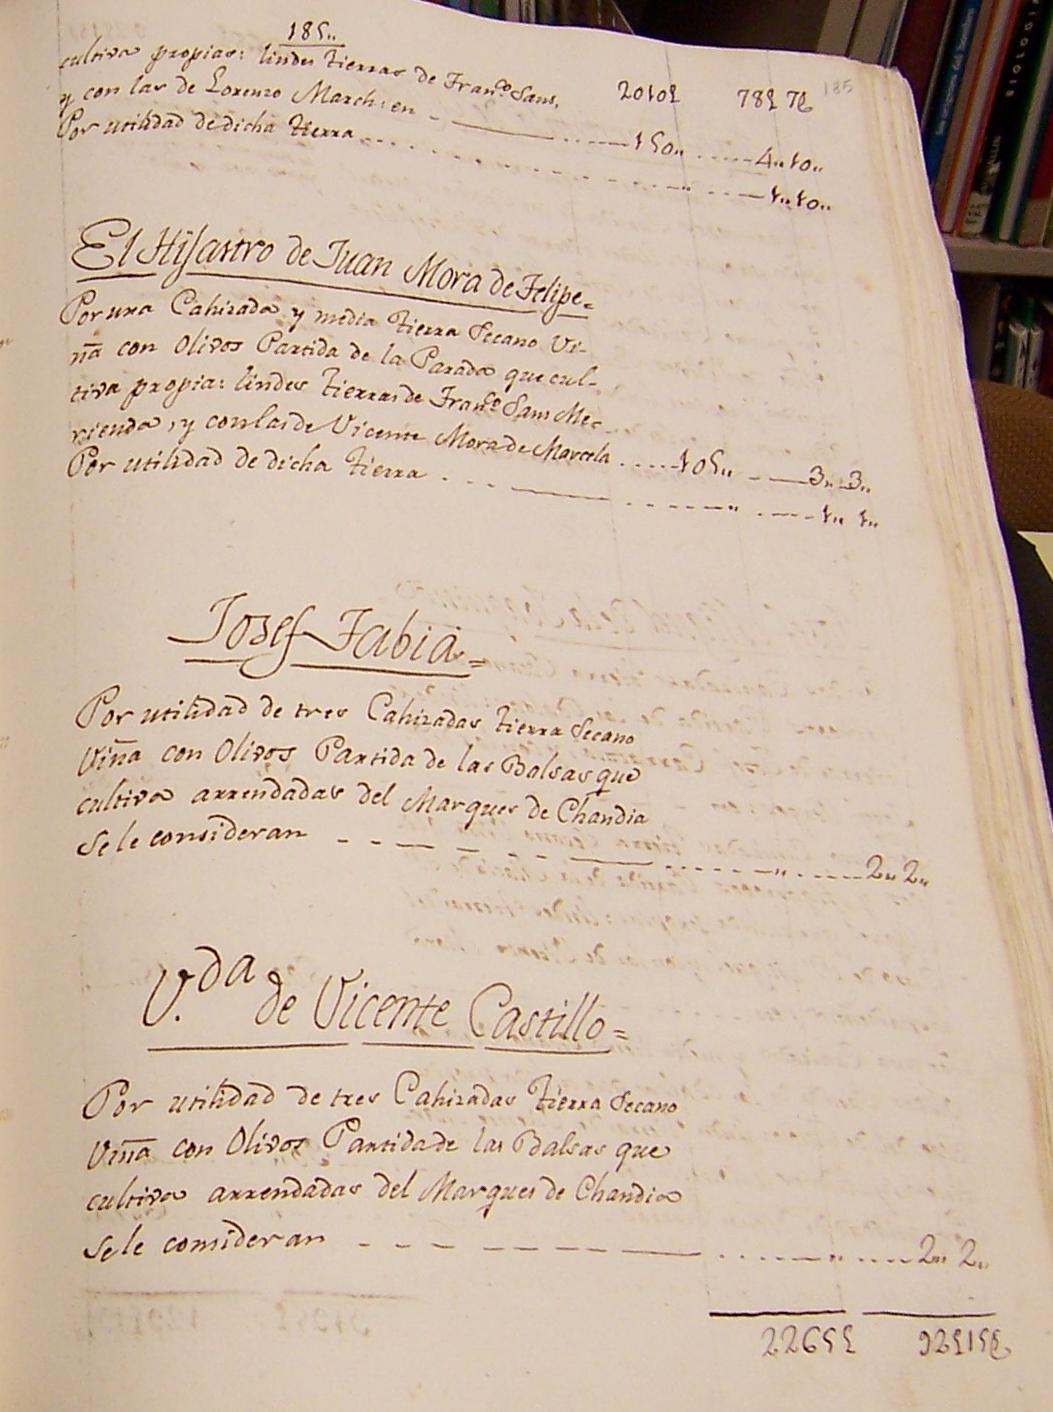 185..
cultiva propias: lindes tierras de Fran.co Sans,
y con las de Lorenzo March: en - 150.. - 4.. 10..
Por utilidad de dicha tierra - " - 1.. 10..
185
El Hijastro de Juan Mora de Felipe=
Por una Cahizada y media tierra Secano Vi-
ña con Olivos Partida de la Parada que cul-
tiva propia: lindes tierras de Fran.co Sans Me-
rienda, y con las de Vicente Mora de Marcela - 105.. - 3.. 3..
Por utilidad de dicha tierra - " - 1.. 1..
Josef Fabia=
Por utilidad de tres Cahizadas tierra Secano
Viña con Olivos Partida de las Balsas que
cultiva arrendadas del Marques de Chandia
se le consideran - " - 2.. 2..
V.da de Vicente Castillo=
Por utilidad de tres Cahizadas tierra Secano
Viña con Olivos Partida de las Balsas que
cultiva arrendadas del Marques de Chandia
se le consideran - " - 2.. 2..